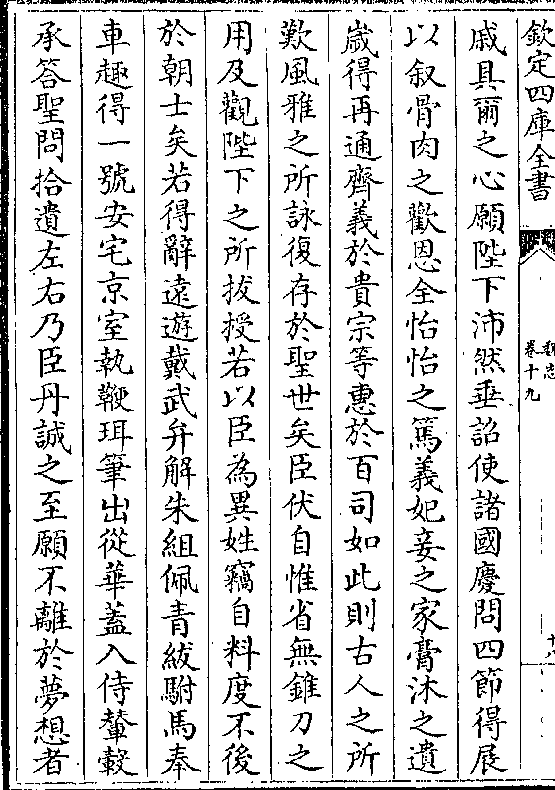 欽定四庫全書
魏志
卷十九
戚具爾之心願陛下沛然垂詔使諸國慶問四節得展
以叙骨肉之歡恩全怡怡之篤義妃妾之家膏沐之遺
歲得再通齊義於貴宗等惠於百司如此則古人之所
歎風雅之所詠復存於聖世矣臣伏自惟省無錐刀之
用及觀陛下之所拔授若以臣為異姓竊自料度不後
於朝士矣若得辭遠遊戴武弁解朱組佩青紱駙馬奉
車趣得一號安宅京室執鞭珥筆出從華蓋入侍輦轂
承答聖問拾遺左右乃臣丹誠之至願不離於夢想者